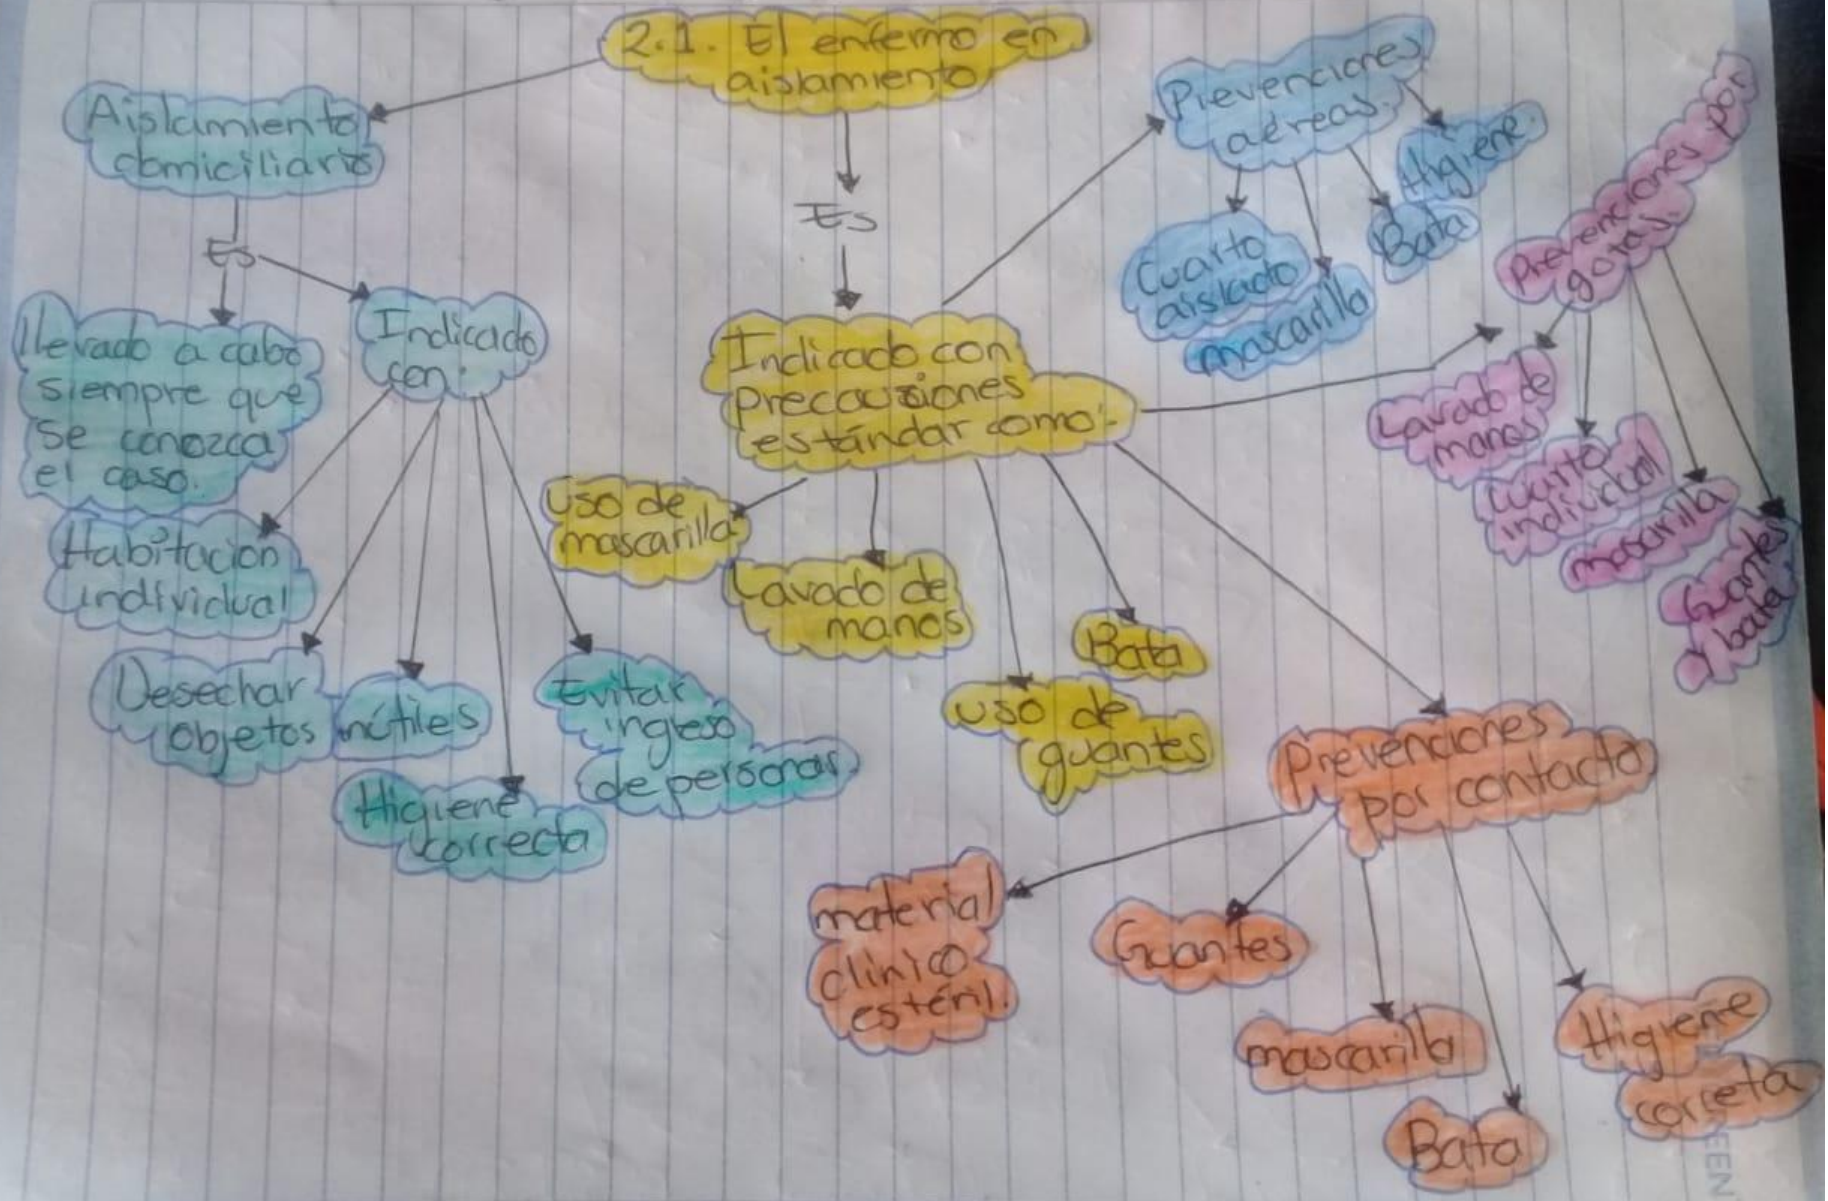 2.1. El enfermo en
aislamiento
Aislamiento
domiciliario
Es
llevado a cabo
siempre que
se conozca
el caso.
Indicado
con:
Habitacion
individual
Desechar
objetos inútiles
Higiene
correcta
Evitar
ingreso
de personas
Es
Indicado con
precauciones
estándar como:
uso de
mascarilla
Lavado de
manos
uso de
guantes
Bata
Prevenciones
aéreas.
Cuarto
aislado
mascarilla
Bata
Higiene.
Prevenciones por
gotas.
Lavado de
manos
Cuarto
individual
mascarilla
Guantes
y bata
Prevenciones
por contacto
material
clinico
estéril.
Guantes
mascarilla
Bata
Higiene
correta